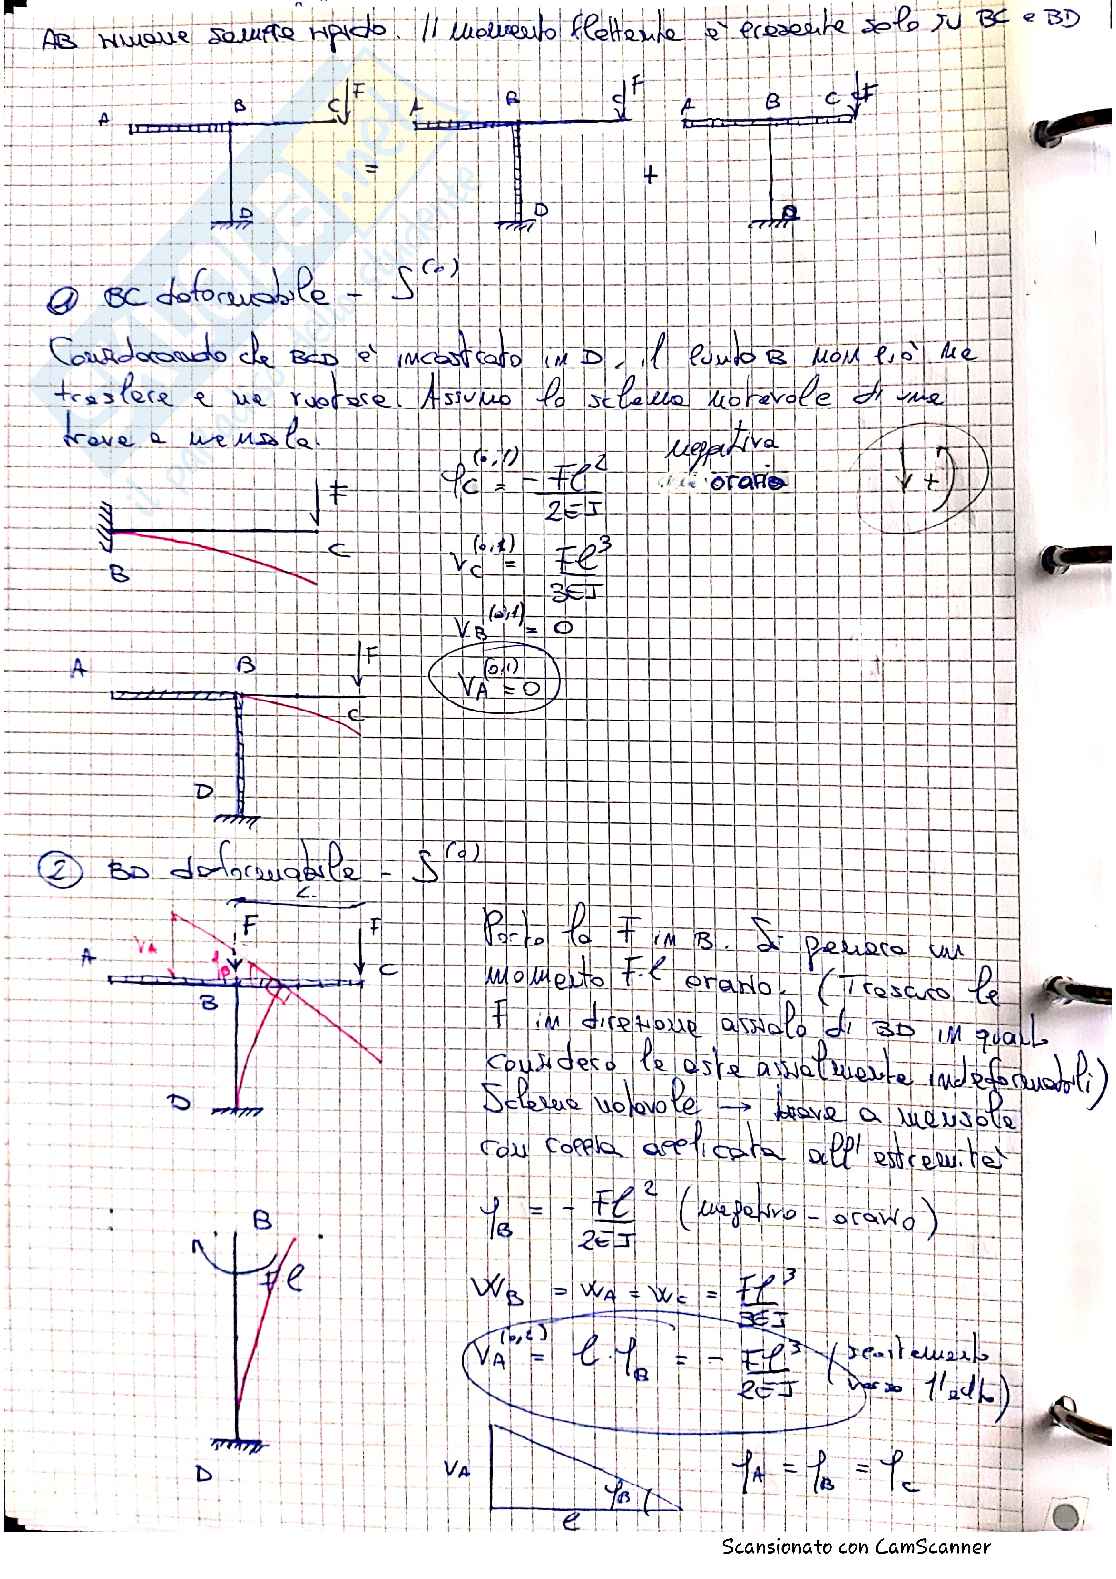 AB rimane sempre rigido. Il momento flettente è presente solo su BC e BD
A B C F A B C F A B C F
= +
D D D
① BC deformabile - S^(0)
Considerando che BCD è incastrato in D, il punto B non può né
traslare e né ruotare. Assumo lo schema notevole di una
trave a mensola.
φ_C^(0,1) = - Fl²/2EJ negativa oraria
↓ +
F
B C
V_C^(0,1) = Fl³/3EJ
V_B^(0,1) = 0
V_A^(0,1) = 0
A B F
C
D
② BD deformabile - S^(0)
L
F F
A V_A φ_B C
B
D
Porto la F in B. Si genera un
momento F·l orario. (Trascuro la
F in direzione assiale di BD in quanto
considero le aste assialmente indeformabili)
Schema notevole → trave a mensola
con coppia applicata all'estremità
φ_B = - Fl²/2EJ (negativo - orario)
B
Fl
D
W_B = W_A = W_C = Fl³/3EJ
V_A^(0,2) = l·φ_B = - Fl³/2EJ (spostamento
verso l'alto)
V_A φ_B l
φ_A = φ_B = φ_C
Scansionato con CamScanner